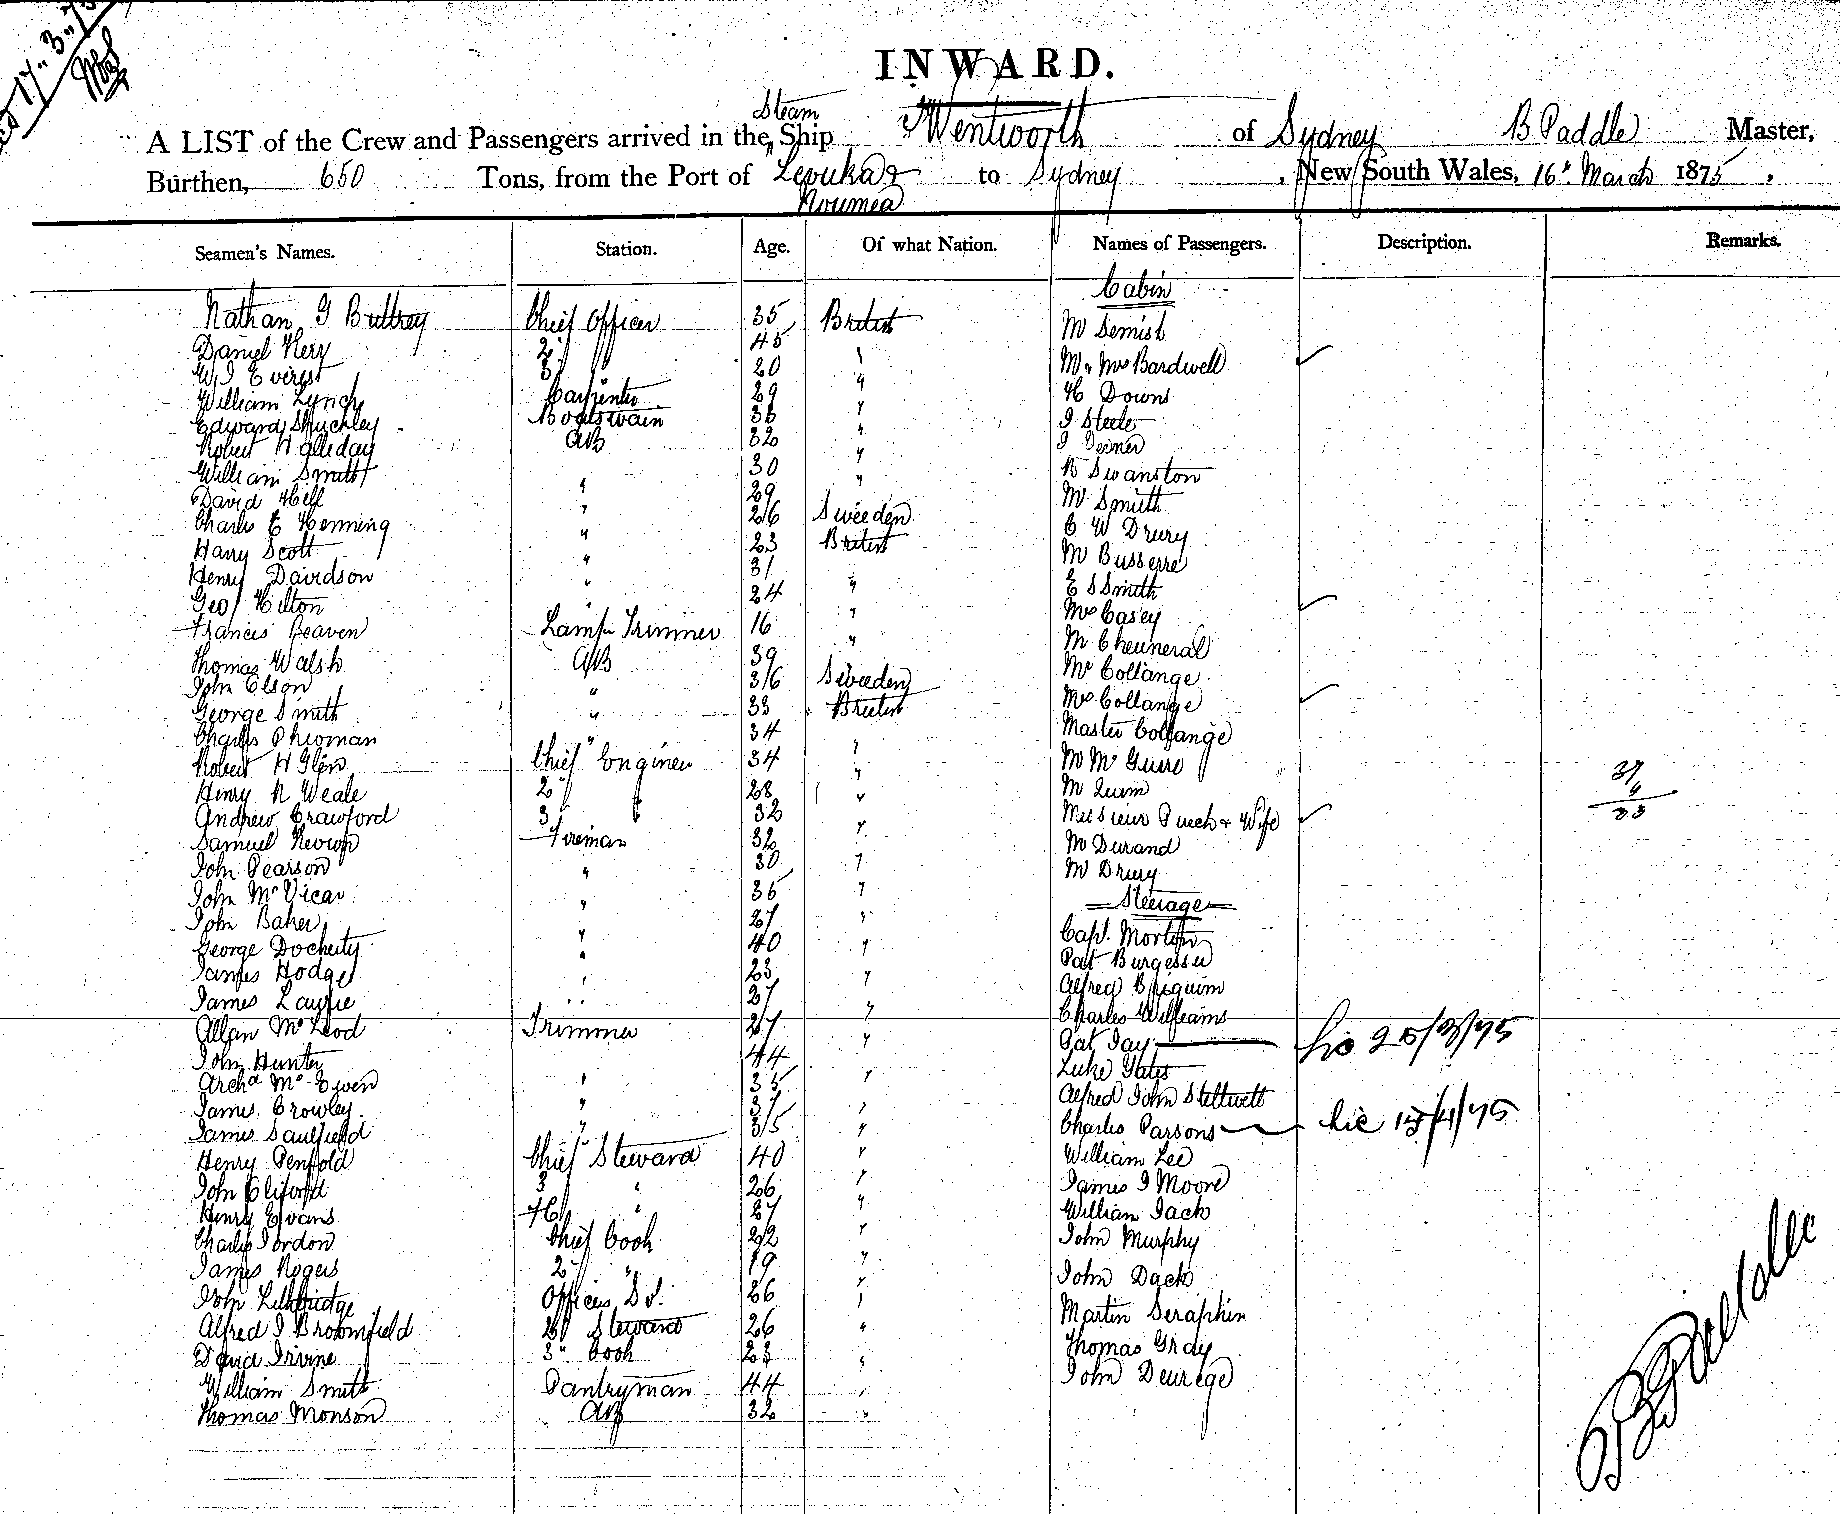 17.. 3..75
INWARD.
Steam
A LIST of the Crew and Passengers arrived in the Ship Wentworth of Sydney B Paddle Master,
Burthen, 650 Tons, from the Port of Levuka & to Sydney , New South Wales, 16th March 1875 ,
Noumea
Seamen's Names. Station. Age. Of what Nation. Names of Passengers. Description. Remarks.
Cabin
Nathan G Buttrey Chief Officer 35 British Mr Semish
Daniel Kerr 2 " 45 " Mr & Mrs Bardwell
W J Everest 3 " 20 " H Downs
William Lynch Carpenter 29 " J Steele
Edward Shuckley Boatswain 36 " J
Robert Halliday AB 32 " R Swanston
William Smith 30 " Mr Smith
David Hill " 29 C W Drury
Charles E Henning " 26 Sweeden Mr Busserre
Harry Scott " 23 British E S Smith
Henry Davidson " 31 Mrs Casey
Geo Hilton " 24 " Mr Cheuneral
Francis Beaven Lamp Trimmer 16 " Mr Collange
Thomas Walsh AB 39 " Mrs Collange
John Olson " 36 Sweeden Master Collange
George Smith " 33 British Mr McGuire
Charles Phioman " 34 Mr Quim
Robert H Glen Chief Engineer 34 " Messieur Puech & Wife
Henry N Weale 2 " 28 " Mr Durand
Andrew Crawford 3 " 32 " Mr Drury
Samuel Fireman 32 " Steerage
John Pearson " 30 " Capt. Morton
John McVicar " 36 " Pat Burgess
John Baker " 27 " Alfred
George Docherty " 40 " Charles Williams
James Hodge " 23 " Pat Jay
James Laurie " 27 " Luke Yates
Allan McLeod Trimmer 27 " Alfred John Stillwell
John Hunter 44 " Charles Parsons
Archd McEwen " 35 " William Lee
James Crowley " 37 " James J Moore
James Caulfield " 35 " William Jack
Henry Penfold Chief Steward 40 " John Murphy
John Cliford 3 " 26 " John Dack
Henry Evans 4th " 27 " Martin Seraphin
Charles Jordon Chief Cook 22 " Thomas Gray
James Rogers 2 " 19 " John Deurege
John Lethbridge Officers St. 26 "
Alfred J Broomfield 2d Steward 26 "
David Irvine 3" Cook 23 "
William Smith Pantryman 44 "
Thomas Monson AB 32 "